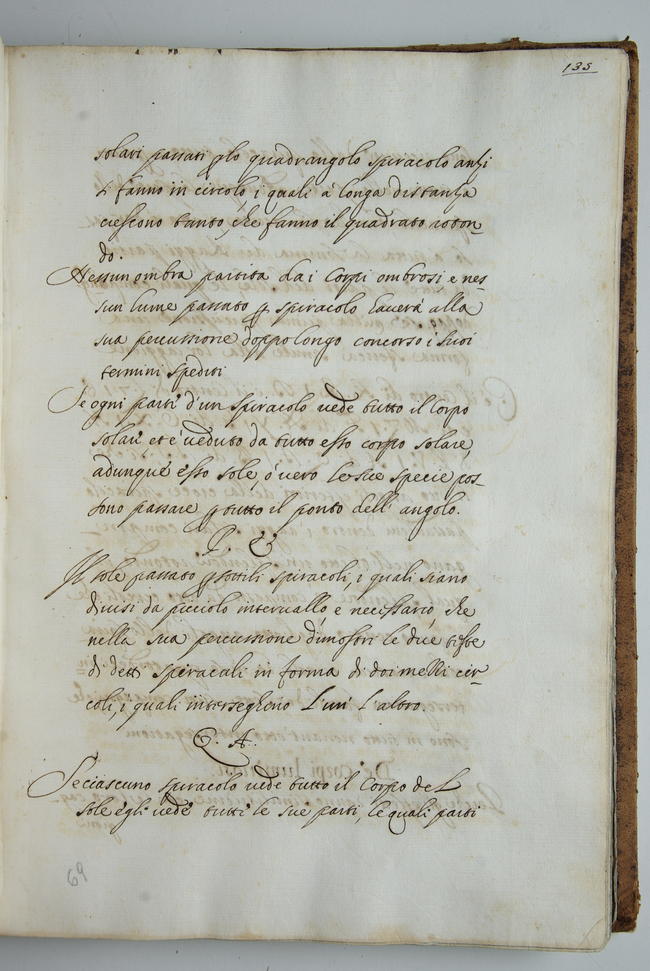 135
solari passati p lo quadrangolo spiracolo anzi
si fanno in circolo, i quali à longa distanza
crescono tanto, che fanno il quadrato roton-
do.
Nessun ombra partita dai Corpi ombrosi, e nes-
sun lume passato p spiracolo haverà alla
sua percussione doppo longo concorso i suoi
termini spediti
Se ogni parte d'un spiracolo vede tutto il Corpo
solare et è veduto da tutto esso corpo solare,
adunque esso sole, ò vero le sue specie pos-
sono passare p tutto il ponto dell' angolo.
Il sole passato p sottili spiracoli, i quali siano
divisi da picciolo intervallo, è necessario, che
nella sua percussione dimostri le due teste
di detti spiracali in forma di doi mezzi cir-
coli, i quali intersegheno l'un' l'altro.
C. A.
Se ciascuno spiracolo vede tutto il Corpo del
sole egli vede tutte le sue parti, le quali parti
69